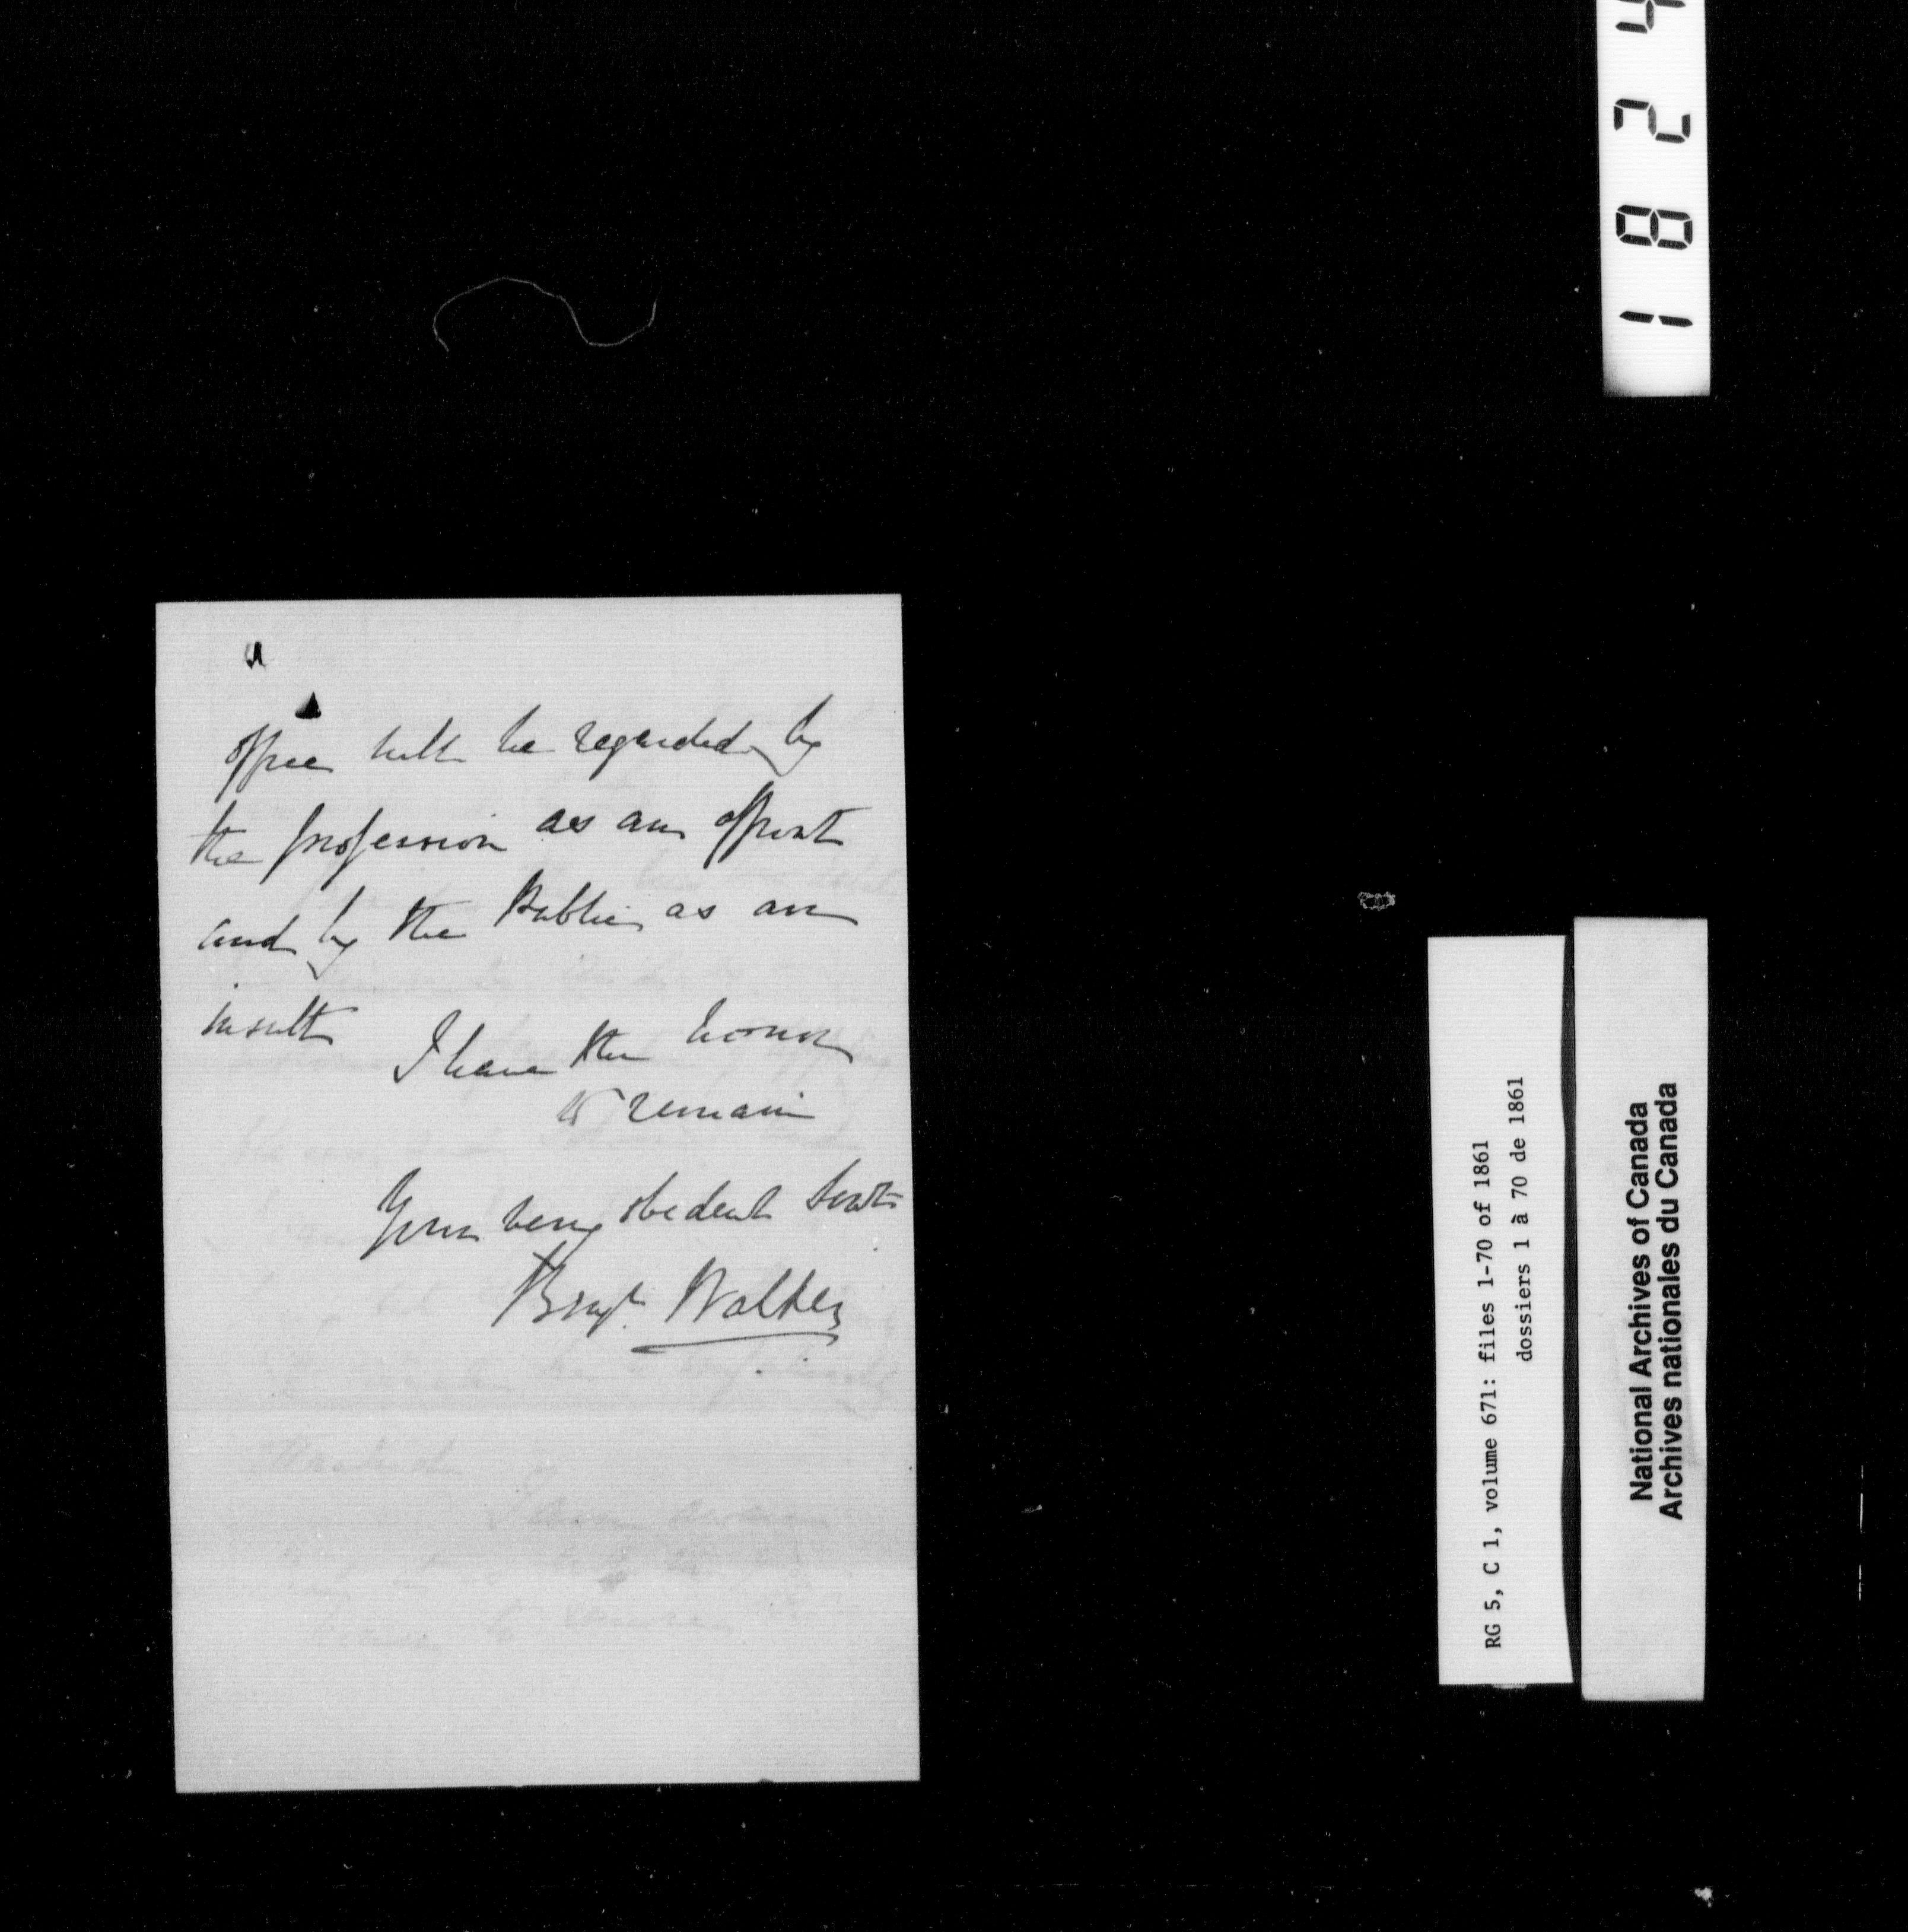 office will be regarded by
the profession as an affront
and by the Public as an
insult
I have the honor
to remain
Your very obedient Servt
Benjn Walker
1824
RG 5, C 1, volume 671: files 1-70 of 1861
dossiers 1 à 70 de 1861
National Archives of Canada
Archives nationales du Canada